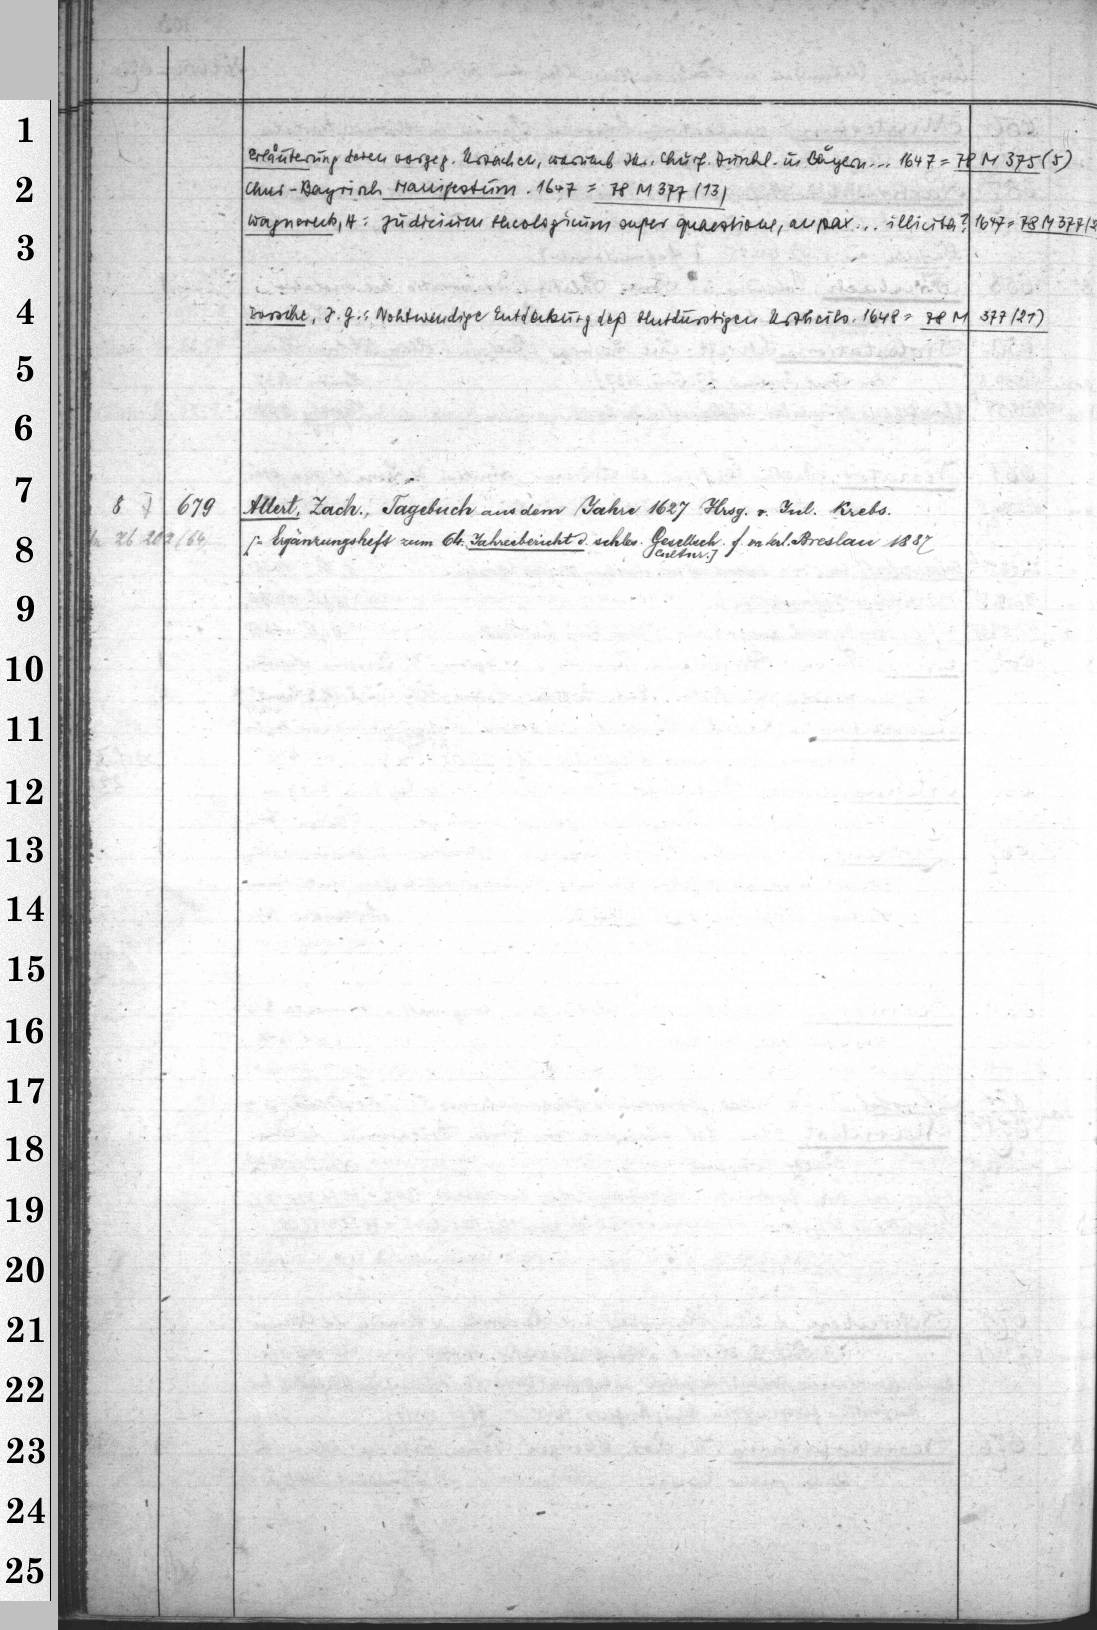 Erläuterung deren vorgeg. Ursachen, warumb Ihr. Churf. Durchl. in Bayern... 1647 = 78 M 375 (5)
Chur-Bayrisch Manifestum. 1647 = 78 M 377 (13)
Wagnereck, H: Judicium theologicum super quaestione, an pax... illicita? 1647 = 78 M 377 (2
Dorsche, J. G.: Nohtwendige Entdeckung deß blutdürstigen Urtheils. 1648 = 78 M 377 (21)
8 J 679 Allert, Zach., Tagebuch aus dem Jahre 1627 Hrsg. v. Jul. Krebs.
26 202/64 [= Ergänzungsheft zum 64. Jahresbericht d. schles. Gesellsch. f. vaterl. Breslau 1887
Cultur.]
1
2
3
4
5
6
7
8
9
10
11
12
13
14
15
16
17
18
19
20
21
22
23
24
25